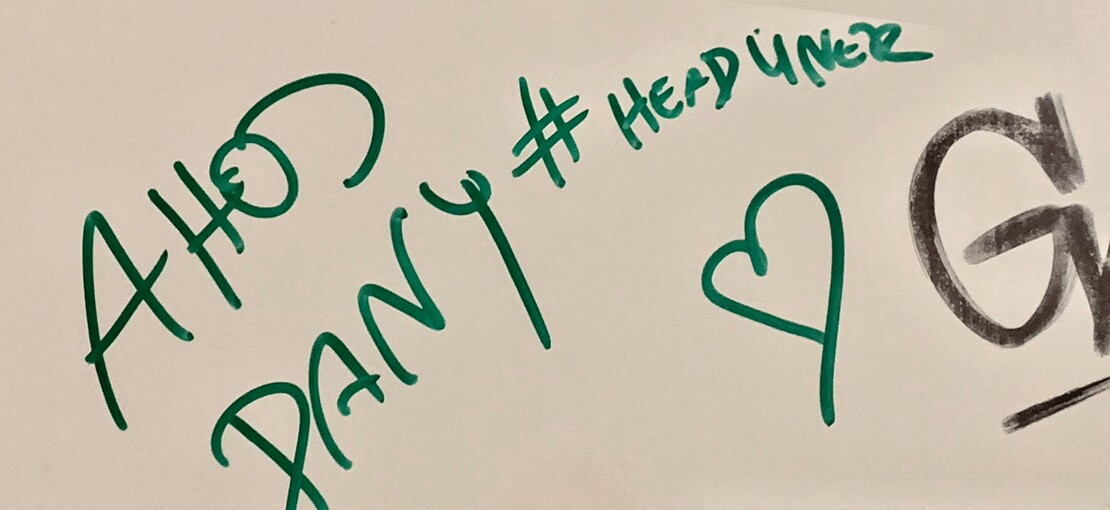 AHOJ
DANY #HEADLINER
G